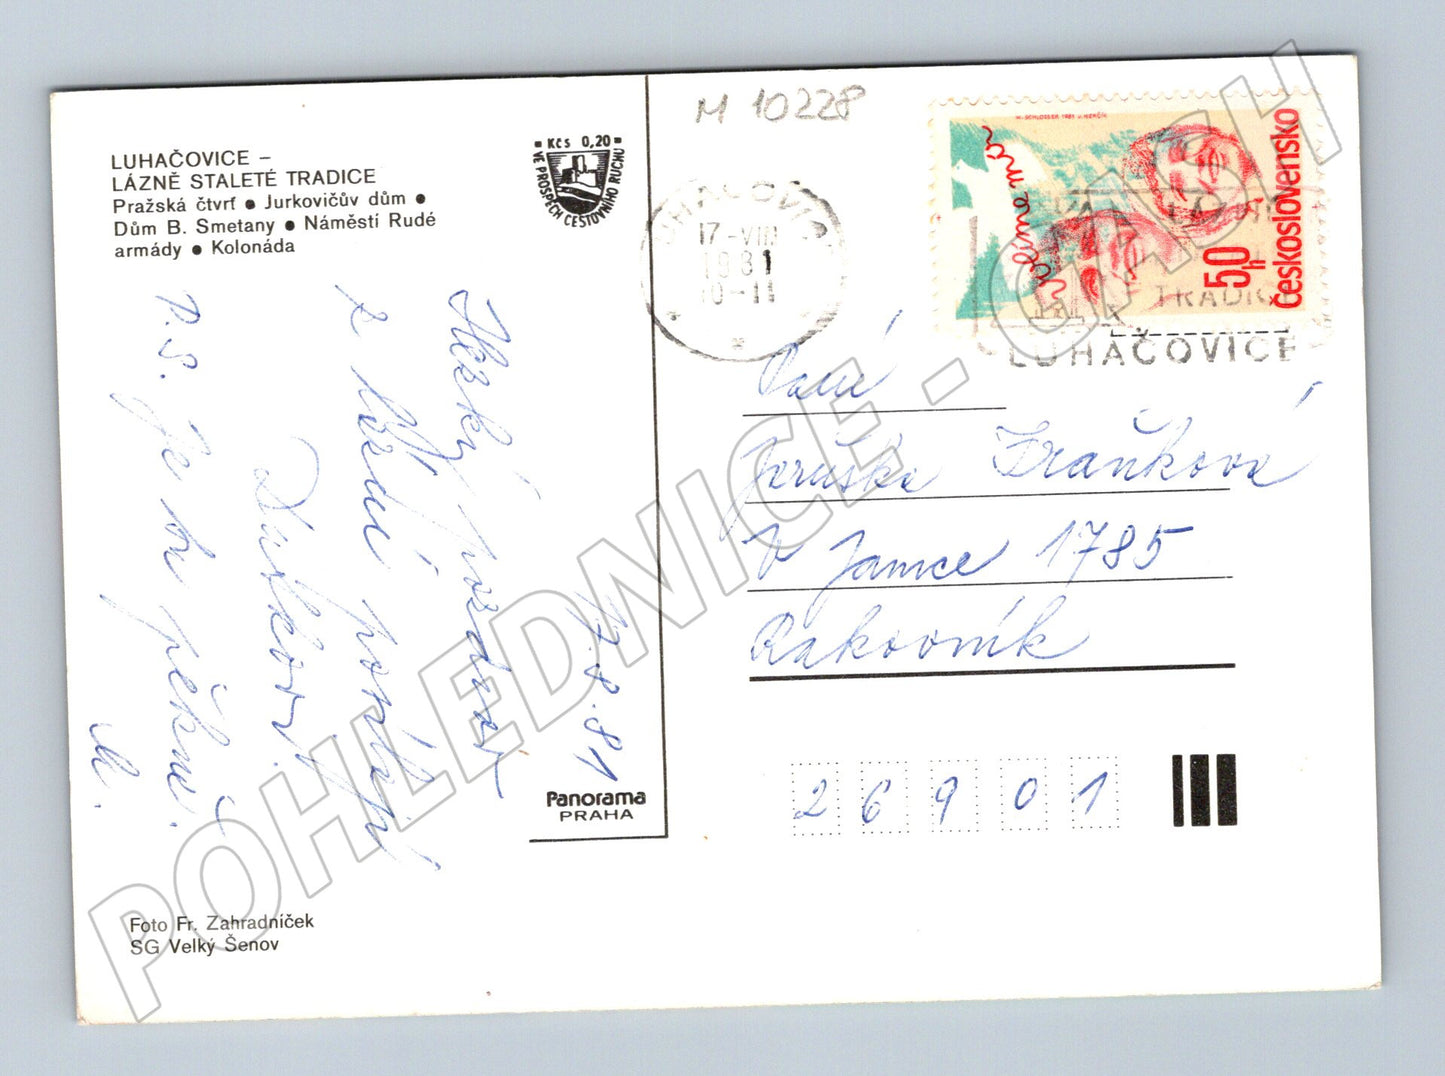 LUHAČOVICE –
LÁZNĚ STALETÉ TRADICE
Pražská čtvrť ● Jurkovičův dům ●
Dům B. Smetany ● Náměstí Rudé
armády ● Kolonáda
Kčs 0,20
VE PROSPĚCH CESTOVNÍHO RUCHU
M 10228
LUHAČOVICE
17-VIII
1981
10-11
volíme mír
50h
Československo
LÁZNĚ
TRADIC
LUHAČOVICE
Hezký pozdrav
z lázní
P.S. Je tu pěkně.
M.
17.8.81
Paní
Jaruška
V Jamce 1785
Rakovník
26901
Panorama
PRAHA
Foto Fr. Zahradníček
SG Velký Šenov
POHLEDNICE - CASH